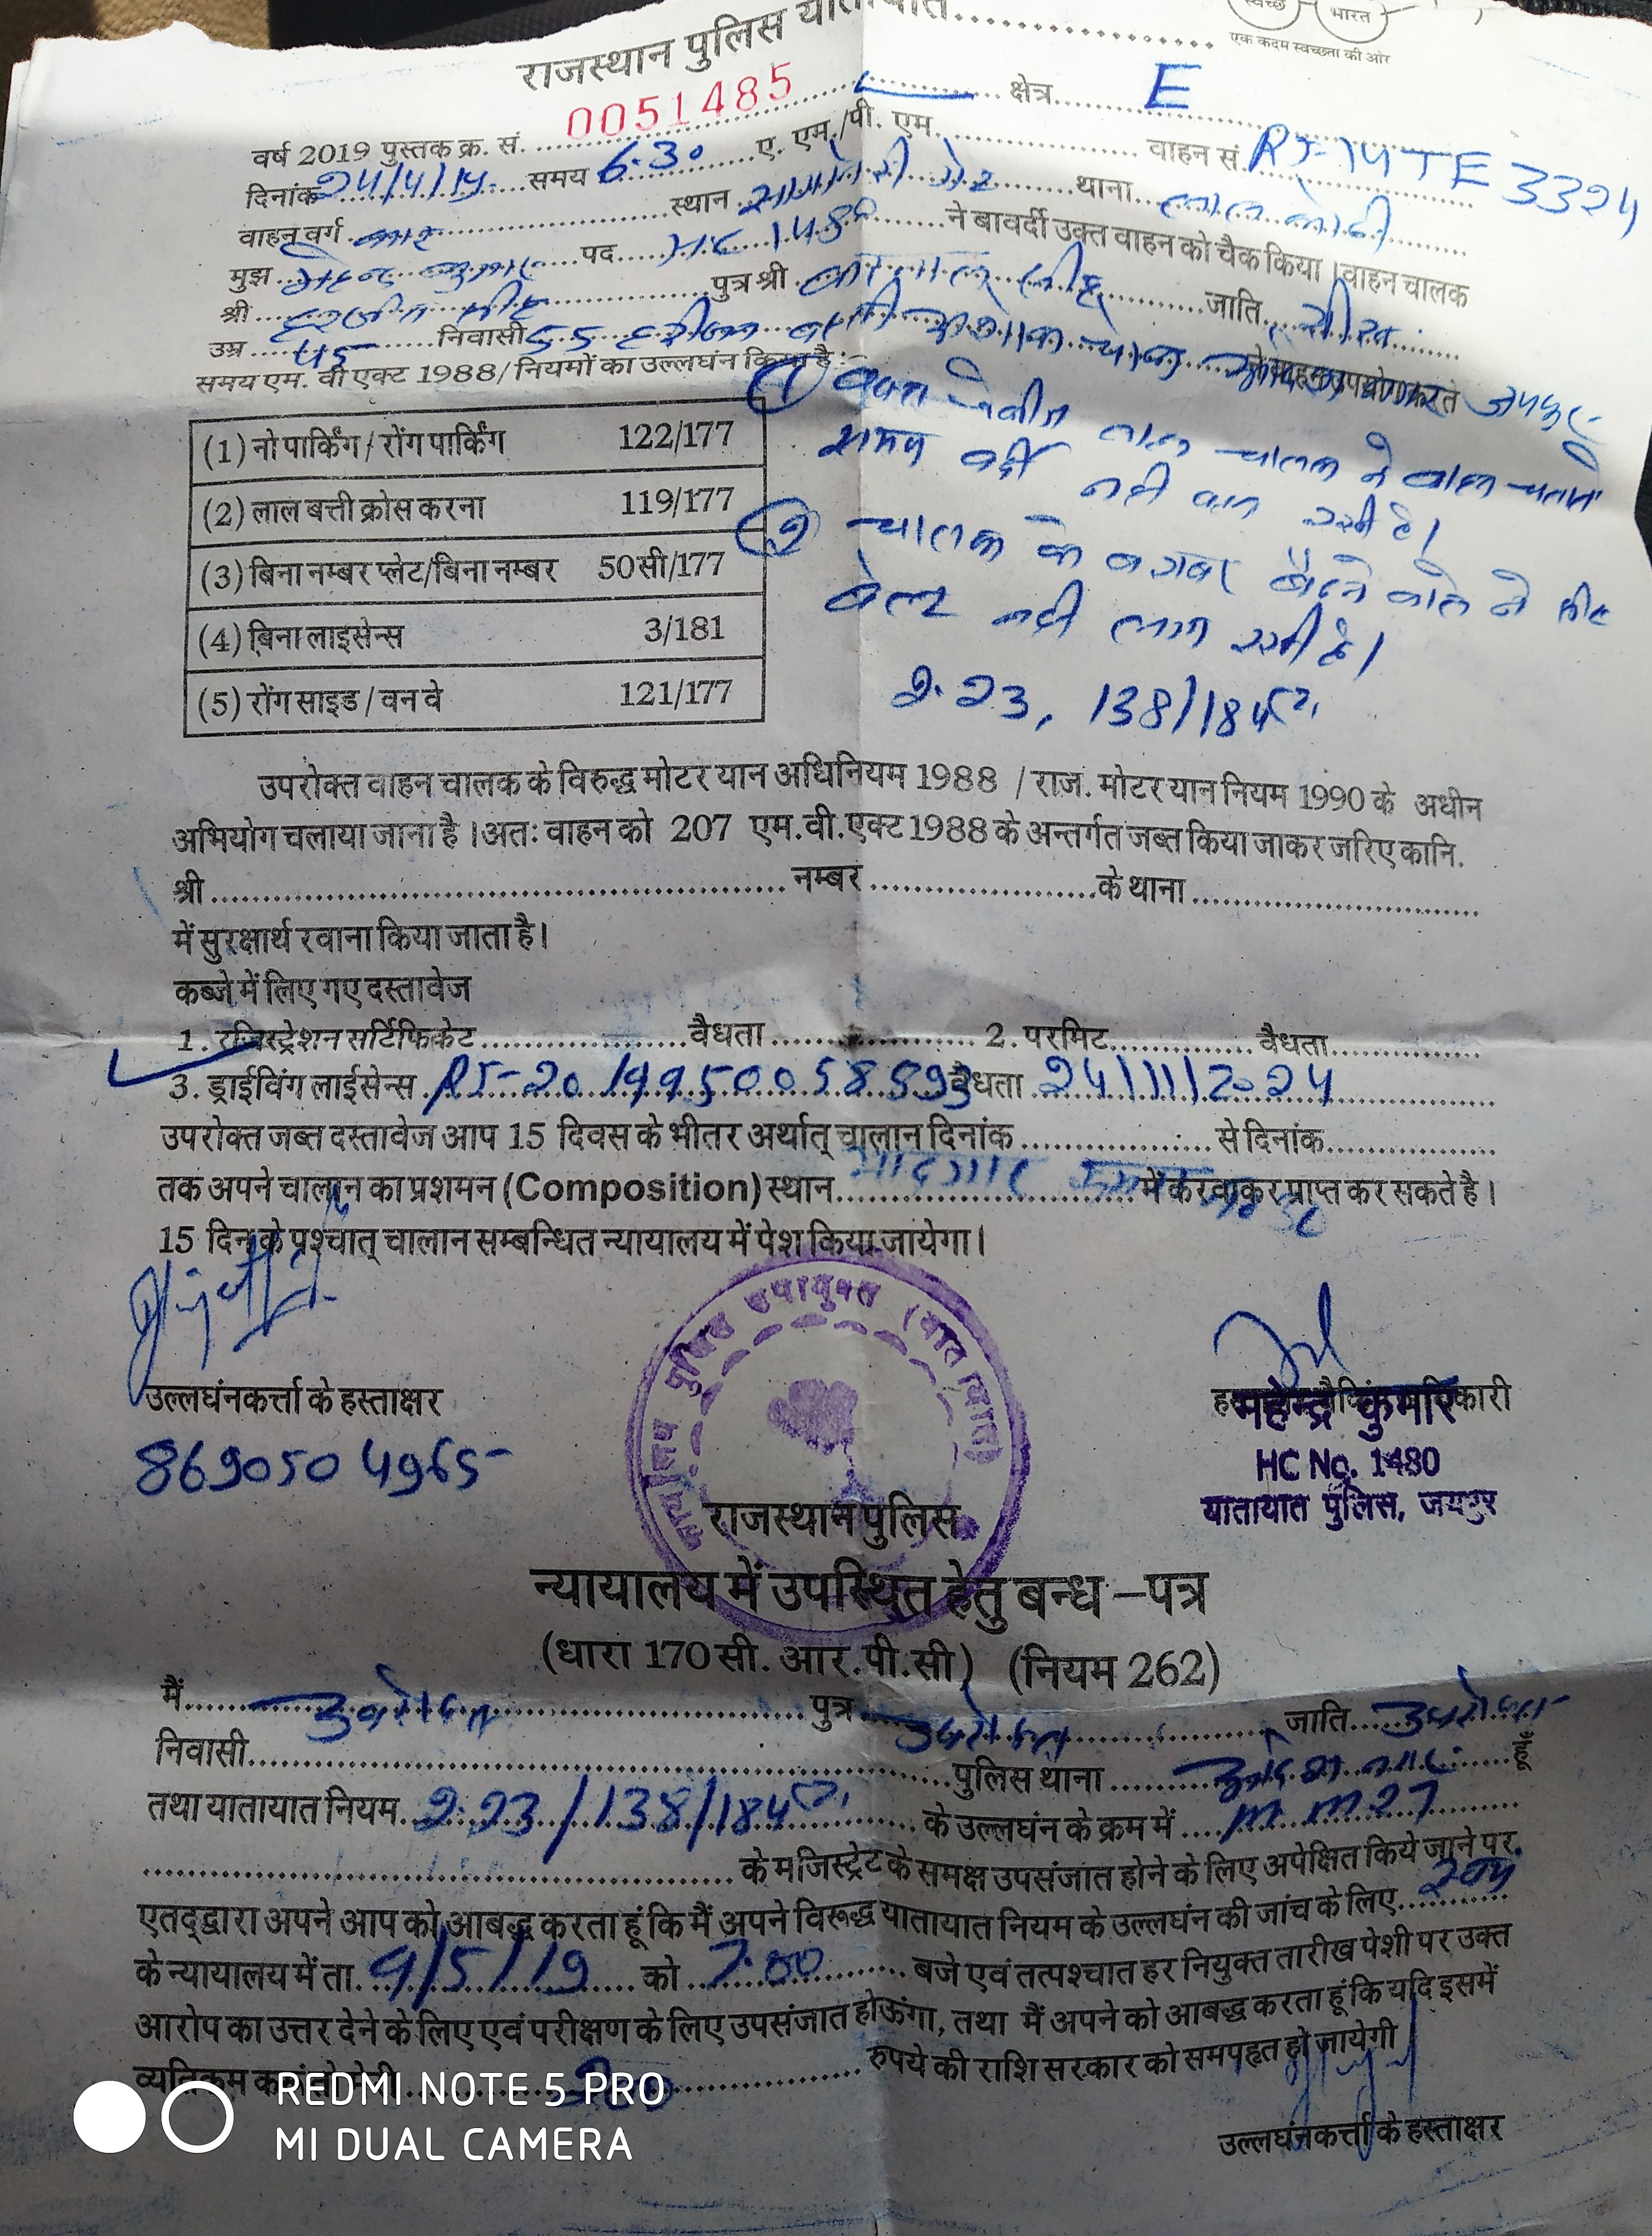 स्वच्छ भारत
एक कदम स्वच्छता की ओर
राजस्थान पुलिस यातायात
0051485
क्षेत्र E
वर्ष 2019 पुस्तक क्र. सं.
दिनांक 24/4/19 समय 6.30 ए. एम./पी. एम. वाहन सं. RJ-14 TE 3324
वाहन वर्ग कार स्थान सांगानेरी गेट थाना लाल कोठी
मुझ महेन्द्र कुमार पद HC 1480 ने बावर्दी उक्त वाहन को चैक किया। वाहन चालक
श्री पुत्र श्री जाति
उम्र 45 निवासी 55 ने वाहन उपयोग करते जयपुर
समय एम. वी एक्ट 1988/ नियमों का उल्लघंन किया है :-
(1) नो पार्किंग / रोंग पार्किंग 122/177
(2) लाल बत्ती क्रोस करना 119/177
(3) बिना नम्बर प्लेट/बिना नम्बर 50सी/177
(4) बिना लाइसेन्स 3/181
(5) रोंग साइड / वन वे 121/177
① वक्त चैकिंग वाहन चालक ने वाहन चलाते
समय वर्दी नही पहन रखी है।
② चालक के बराबर बैठने वाले ने सीट
बेल्ट नही लगा रखी है।
2.23, 138/184
उपरोक्त वाहन चालक के विरुद्ध मोटर यान अधिनियम 1988 / राज. मोटर यान नियम 1990 के अधीन
अभियोग चलाया जाना है। अतः वाहन को 207 एम.वी.एक्ट 1988 के अन्तर्गत जब्त किया जाकर जरिए कानि.
श्री नम्बर के थाना
में सुरक्षार्थ रवाना किया जाता है।
कब्जे में लिए गए दस्तावेज
1. रजिस्ट्रेशन सर्टिफिकेट वैधता 2. परमिट वैधता
3. ड्राईविंग लाईसेन्स RJ-20 वैधता 24/11/2024
उपरोक्त जब्त दस्तावेज आप 15 दिवस के भीतर अर्थात् चालान दिनांक से दिनांक
तक अपने चालान का प्रशमन (Composition) स्थान यादगार में करवाकर प्राप्त कर सकते है।
15 दिन के पश्चात् चालान सम्बन्धित न्यायालय में पेश किया जायेगा।
कार्यालय पुलिस उपायुक्त (यातायात)
उल्लघंनकर्त्ता के हस्ताक्षर
8690504965
महेन्द्र कुमार
HC No. 1480
यातायात पुलिस, जयपुर
राजस्थान पुलिस
न्यायालय में उपस्थित हेतु बन्ध –पत्र
(धारा 170 सी. आर.पी.सी) (नियम 262)
मैं उपरोक्त पुत्र उपरोक्त जाति उपरोक्त
निवासी पुलिस थाना हूँ
तथा यातायात नियम 2.23/138/184 के उल्लघंन के क्रम में M.M 27
के मजिस्ट्रेट के समक्ष उपसंजात होने के लिए अपेक्षित किये जाने पर
एतद्द्वारा अपने आप को आबद्ध करता हूं कि मैं अपने विरूद्ध यातायात नियम के उल्लघंन की जांच के लिए
के न्यायालय में ता. 9/5/19 को 7.00 बजे एवं तत्पश्चात हर नियुक्त तारीख पेशी पर उक्त
आरोप का उत्तर देने के लिए एवं परीक्षण के लिए उपसंजात होऊंगा, तथा मैं अपने को आबद्ध करता हूं कि यदि इसमें
व्यतिक्रम रुपये की राशि सरकार को समपहृत हो जायेगी
उल्लघंनकर्त्ता के हस्ताक्षर
REDMI NOTE 5 PRO
MI DUAL CAMERA